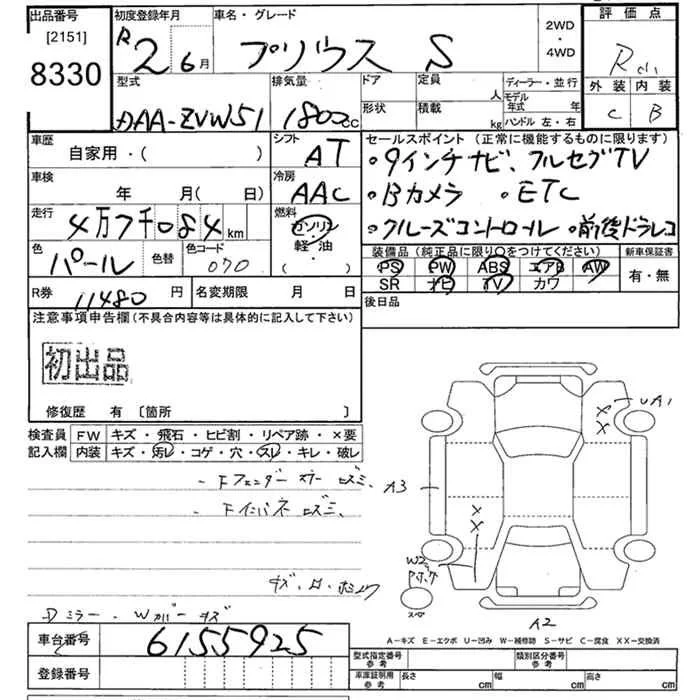 出品番号 初度登録年月 車名・グレード 2WD・4WD 評価点
[2151] 8330
R2 6月 プリウス S R
外装 内装
C B
型式 排気量 ドア 定員 人 ディーラー・並行
DAA-ZVW51 1800cc 形状 積載 kg モデル年式 年
ハンドル 左・右
車歴 シフト セールスポイント(正常に機能するものに限ります)
自家用・( ) AT ・9インチナビ、フルセグTV
車検 冷房 ・Bカメラ ・ETC
年 月( 日) AAC ・クルーズコントロール ・前後ドラレコ
走行 燃料
4万7千084km ガソリン・軽油・( )
色 色替 色コード 装備品(純正品に限り○をつけてください) 新車保証書
パール 070 PS PW ABS エアB AW 有・無
SR ナビ TV カワ
R券 11480円 名変期限 月 日 後日品
注意事項申告欄(不具合内容等は具体的に記入して下さい)
初出品
修復歴 有〔箇所 〕
検査員記入欄 FW キズ・飛石・ヒビ割・リペア跡・×要
内装 キズ・汚レ・コゲ・穴・スレ・キレ・破レ
UA1
A3
W2
A2
Dミラー・Wカバーキズ
A-キズ E-エクボ U-凹み W-補修跡 S-サビ C-腐食 XX-交換済
車台番号 6155925
登録番号
型式指定番号 参考 類別区分番号 参考
車庫証明用 参考 長さ cm 幅 cm 高さ cm